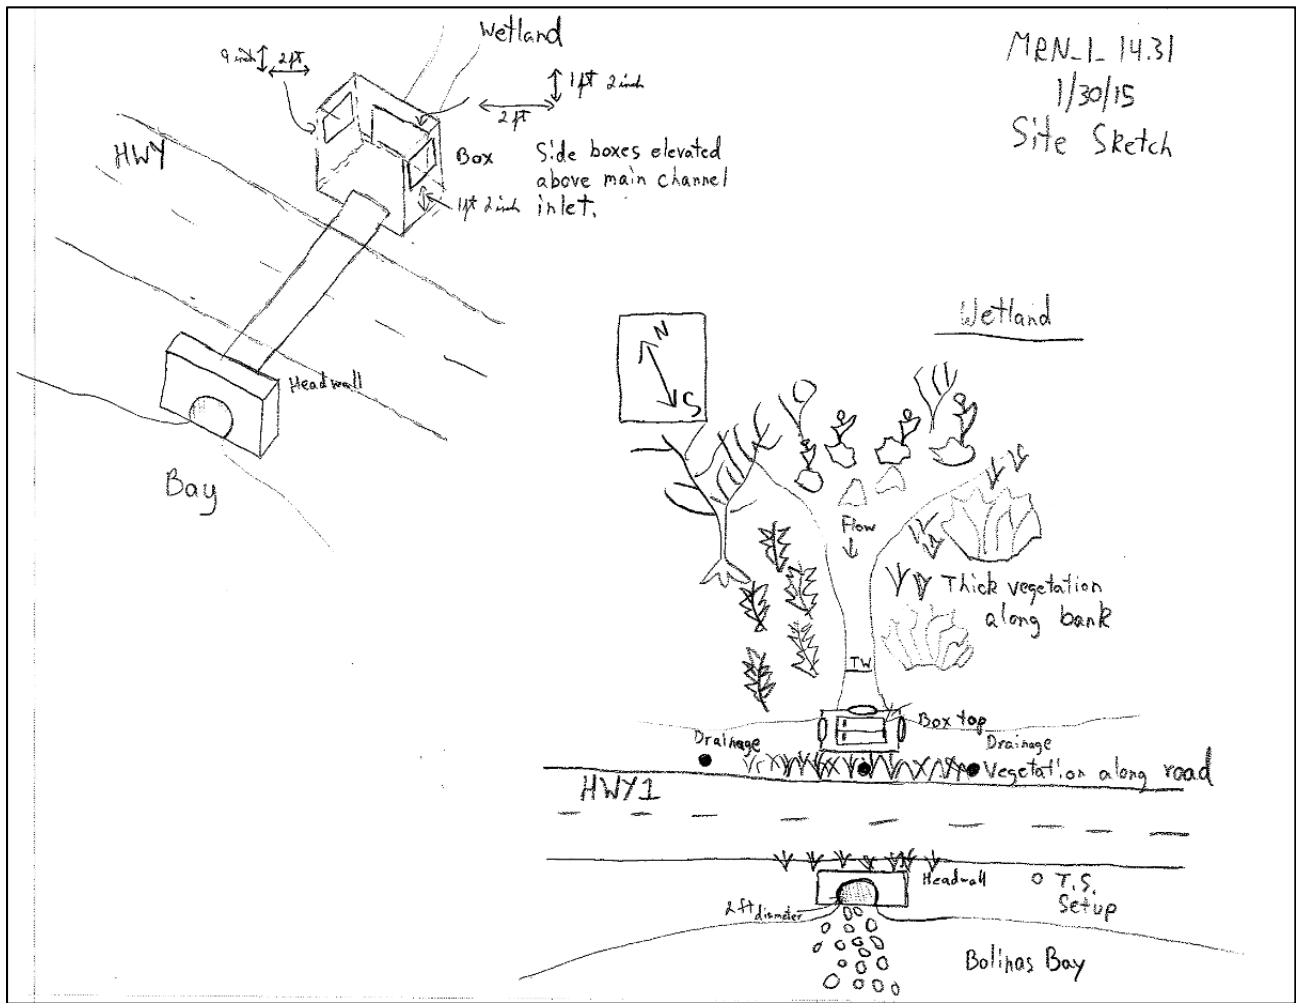 MRN_1_14.31
1/30/15
Site Sketch
Wetland
9 inch
2ft
1ft 2 inch
2ft
HWY
Box
Side boxes elevated
above main channel
inlet.
1ft 2 inch
Headwall
Bay
N
S
Wetland
Flow
Thick vegetation
along bank
TW
Box top
Drainage
Drainage
Vegetation along road
HWY1
Headwall
T.S.
Setup
2ft diameter
Bolinas Bay